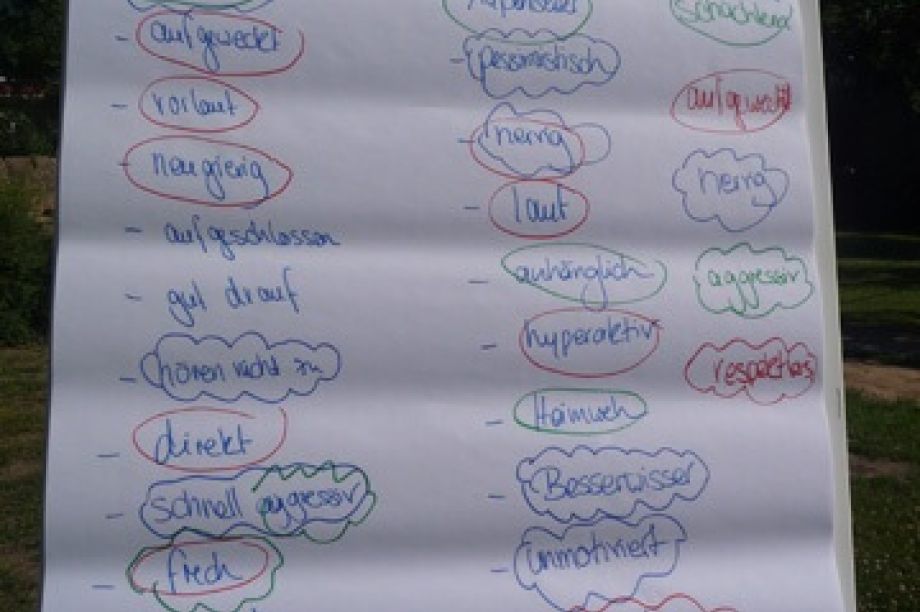 - aufgeweckt
- vorlaut
- neugierig
- aufgeschlossen
- gut drauf
- hören nicht zu
- direkt
- schnell aggressiv
- frech
- pessimistisch
- nerrig
- laut
- anhänglich
- hyperaktiv
- Heimweh
- Besserwisser
- unmotiviert
aufgeweckt
nerrig
aggressiv
respektlos